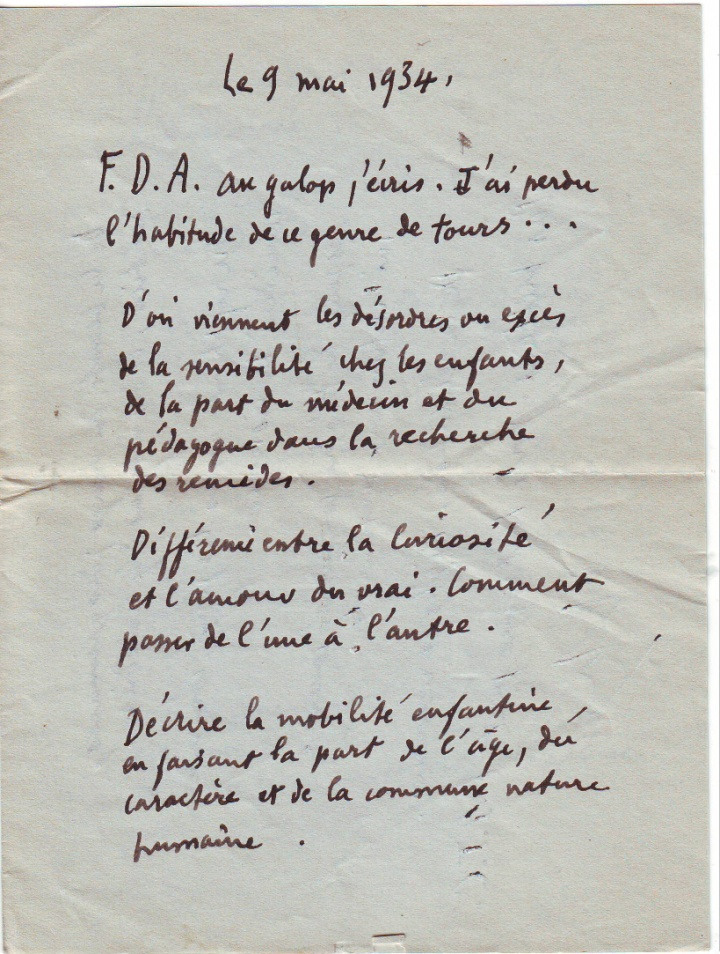 Le 9 mai 1934.
F. D. A. au galop j'écris. J'ai perdu
l'habitude de ce genre de tours . . .
D'où viennent les désordres ou excès
de la sensibilité chez les enfants,
de la part du médecin et du
pédagogue dans la recherche
des remèdes.
Différence entre la curiosité
et l'amour du vrai. Comment
passer de l'une à l'autre.
Décrire la mobilité enfantine
en faisant la part de l'âge, du
caractère et de la commune nature
humaine.